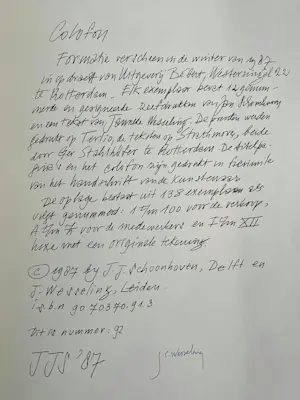 Colofon
Formatie verscheen in de winter van 1987
in opdracht van Uitgeverij Bébert, Westersingel 22
te Rotterdam. Elk exemplaar bevat 12 genum-
merde en gesigneerde zeefdrukken van Jan Schoonhoven
en een tekst van Janneke Wesseling. De prenten werden
gedrukt op Tertio, de teksten op Strathmore, beide
door Ger Stahlhöfer te Rotterdam. De titelpa-
gina's en het colofon zijn gedrukt in facsimile
van het handschrift van de Kunstenaar
De oplage bestaat uit 138 exemplaren als
volgt genummerd: 1 t/m 100 voor de verkoop,
A t/m Z voor de medewerkers en I t/m XII
hexe met een originele tekening
© 1987 by J.J. Schoonhoven, Delft en
J. Wesseling, Leiden.
i.s.b.n 90 70370.91.3
Dit is nummer: 92
JJS '87